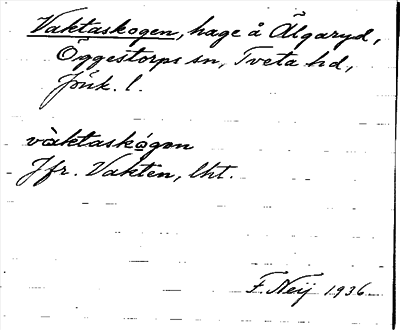 Vaktaskogen, hage å Älgaryd,
Öggestorps sn, Tveta hd,
Jönk. l.
vàktaskógən
Jfr. Vakten, lht.
F. Neij 1936